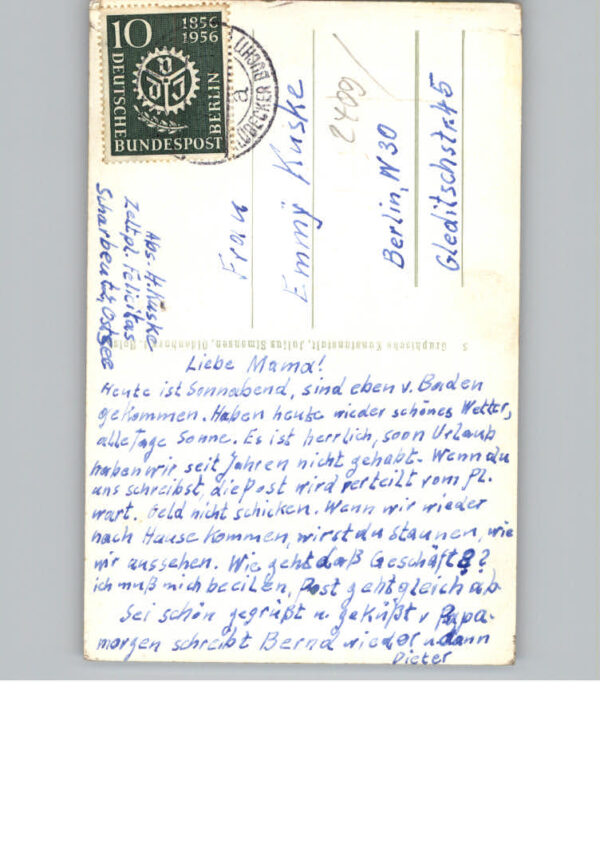 10
1856
1956
DEUTSCHE
BUNDESPOST
BERLIN
LÜBECKER BUCHT
a
Abs. H. Kuske
Zeltpl. Felicitas
Scharbeutz, Ostsee
Frau
Emmy Kuske
2409/
Berlin, W 30
Gleditschstr. 45
S Graphische Kunstanstalt, Julius Simonsen, Oldenburg
Liebe Mama!
Heute ist Sonnabend, sind eben v. Baden
gekommen. Haben heute wieder schönes Wetter,
alle Tage Sonne. Es ist herrlich, soon Urlaub
haben wir seit Jahren nicht gehabt. Wenn du
uns schreibst, die Post wird verteilt vom Pl.
wart. Geld nicht schicken. Wenn wir wieder
nach Hause kommen, wirst du staunen, wie
wir aussehen. Wie geht daß Geschäft?
ich muß mich beeilen, Post geht gleich ab
Sei schön gegrüßt u. geküßt v Papa.
morgen schreibt Bernd wieder u. dann
Dieter